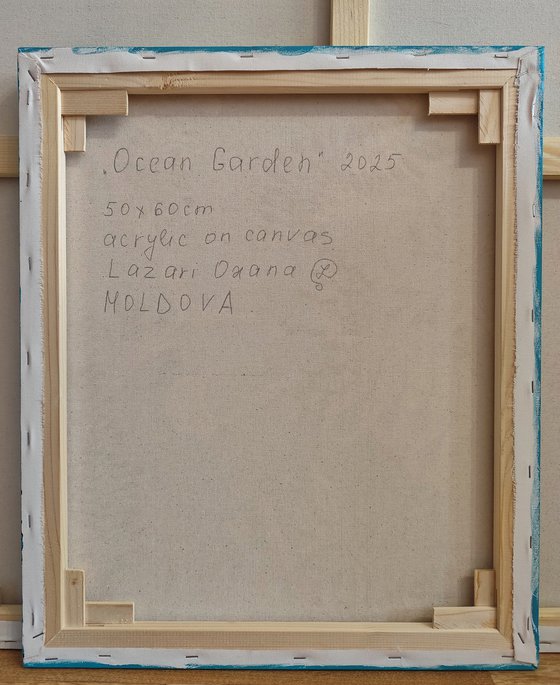 „Ocean Garden" 2025
50x60cm
acrylic on canvas
Lazari Oxana
MOLDOVA